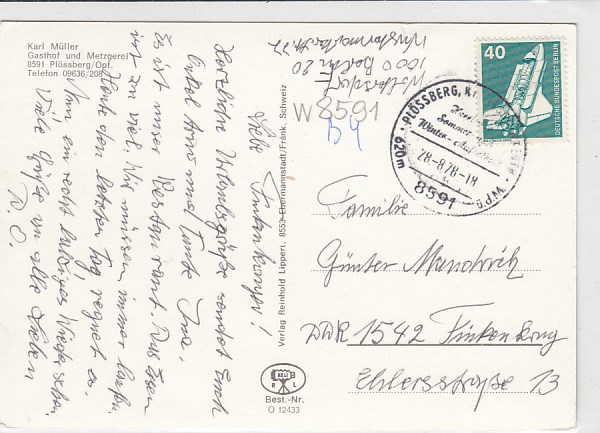 Karl Müller
Gasthof und Metzgerei
8591 Plössberg/Opf.
Telefon 09636/208
1000 Berlin 20
W 8591
40
DEUTSCHE BUNDESPOST BERLIN
PLÖSSBERG, KR.
Sommer
Winter
28-8.78-18
620m
8591
Ü.d.M.
Liebe Finkenkruger!
Herzliche Urlaubsgrüße sendet Euch
Onkel und Tante Ina.
Es ist unser Restaurant. Das Essen
ist zu viel. Wir müssen immer laufen.
Heute den letzten Tag regnet es.
Nun ein recht baldiges Wiedersehen
Viele Grüße an alle Lieben
Verlag Reinhold Lippert, 8553 Ebermannstadt/Fränk. Schweiz
Familie
Günter Mandwich
DDR 1542 Finkenkrug
Ehlersstraße 13
R L
Best.-Nr.
O 12433